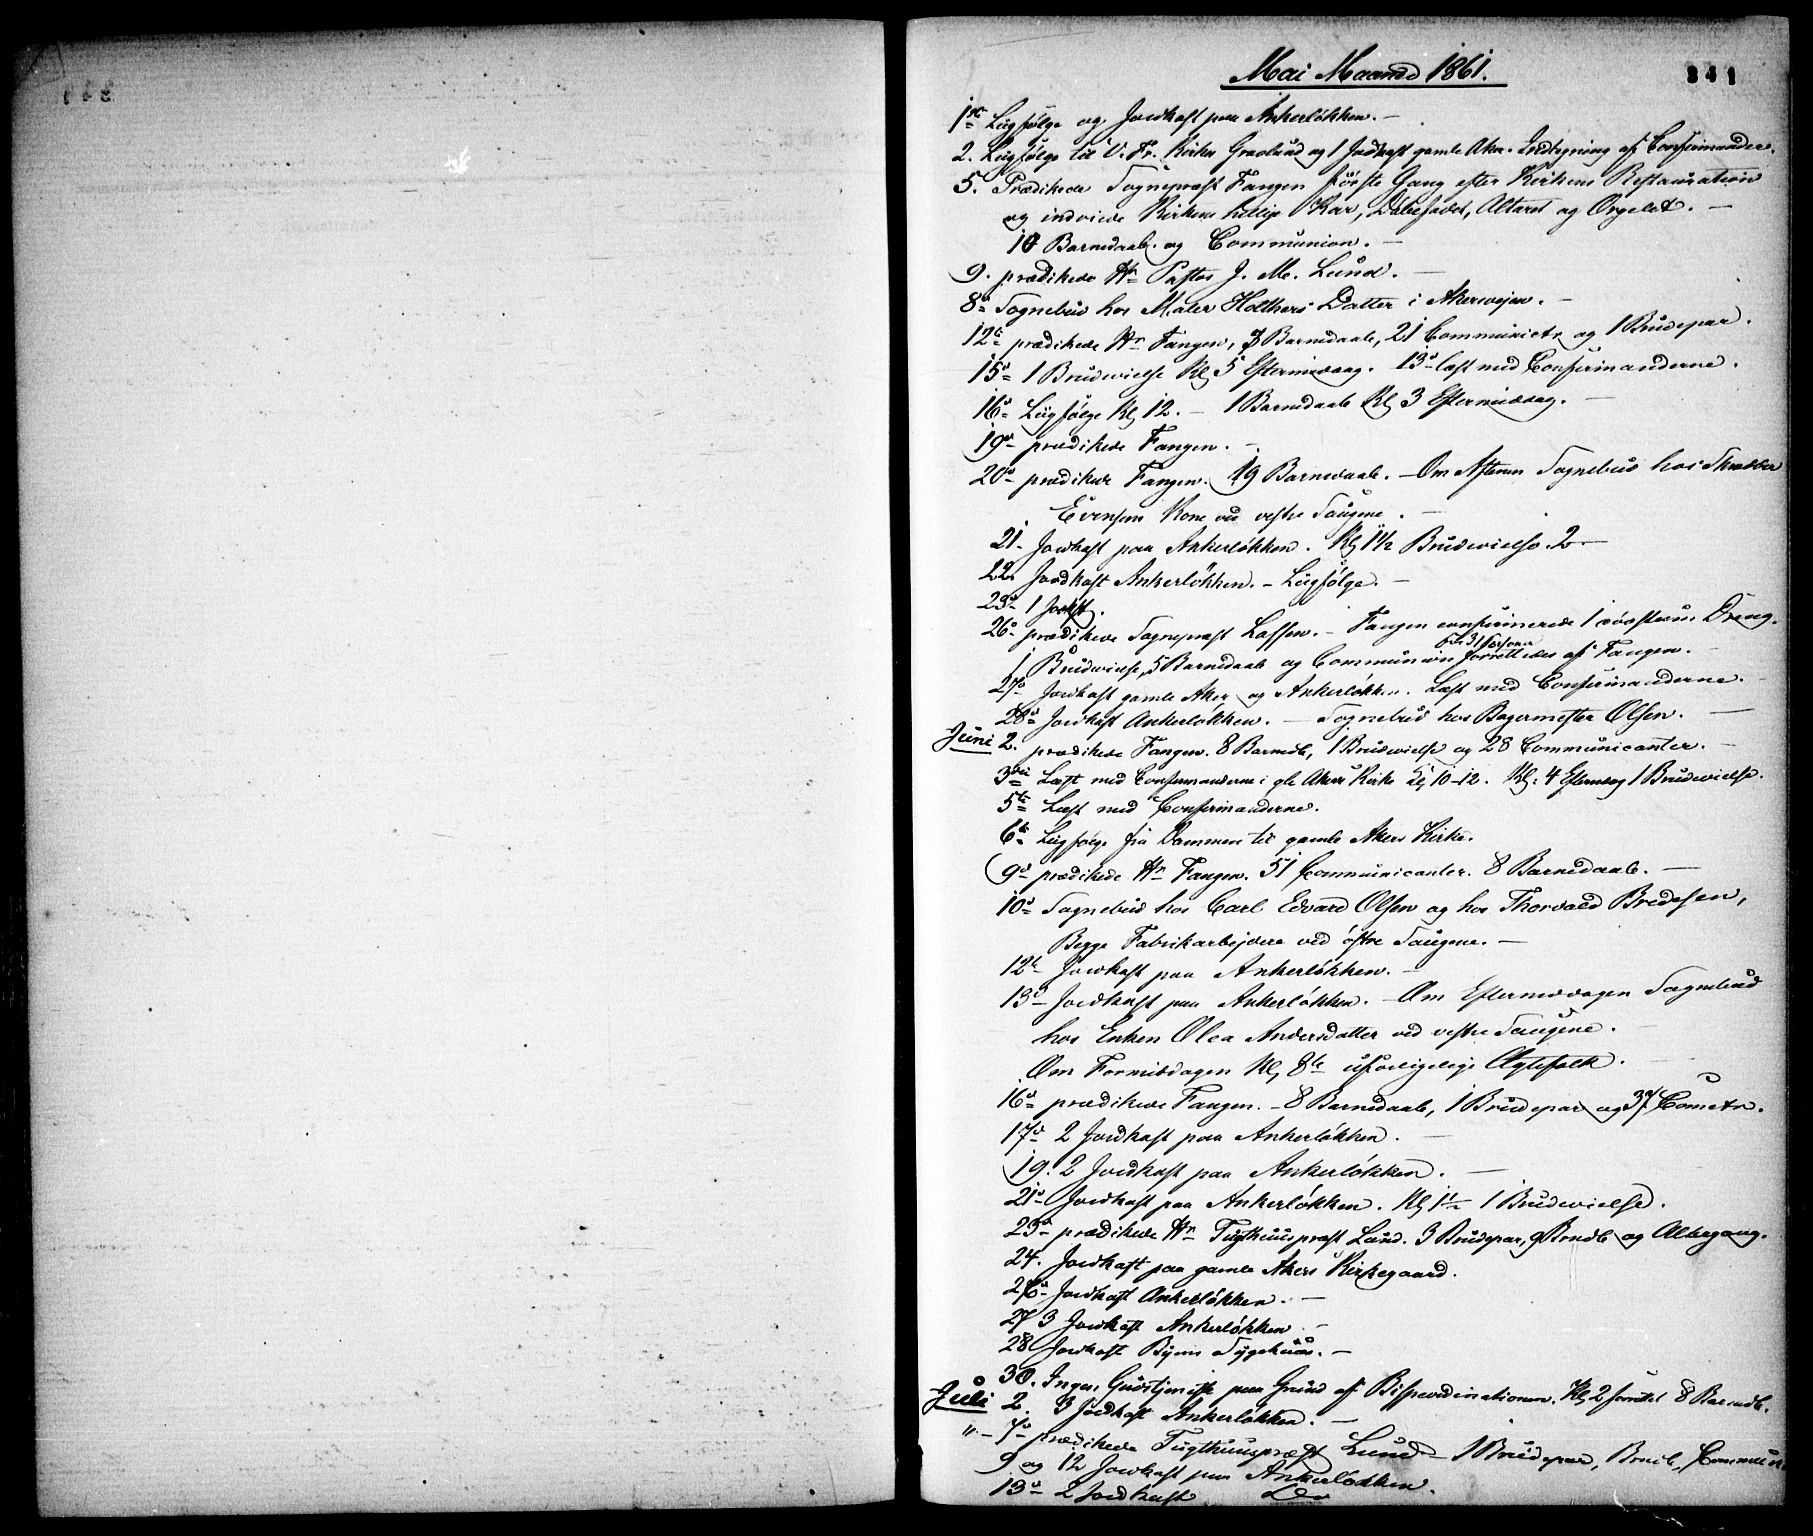 Mai Maaned 1861.
341
1ste Liigfølge og Jordkast paa Ankerløkken. –
2. Liigfølge til V. Fr. Kirkes Gravlund og 1 Jordkast gamle Aker. Indtegning af Confirmander.
5. Prædikede Sognepræst Fangen første Gang efter Kirkens Restauration
og indviede Kirkens hellige Kar, Døbefadet, Altaret og Orgelet. –
10 Barnedaab. og Communion. –
9. prædikede Hr Pastor J. M. Lund. –
8de Sognebud hos Maler Holthers Datter i Akersvejen. –
12te prædikede Hr Fangen, 7 Barnedaab, 21 Communictr og 1 Brudepar.
15de 1 Brudevielse Kl 5 Eftermiddag. 13de læst med Confirmanderne.
16de Liigfølge Kl 12. – 1 Barnedaab Kl 3 Eftermiddag. –
19de prædikede Fangen. –
20de prædikede Fangen. 19 Barnedaab. – Om Aftenen Sognebud hos
Evensens Kone ved vestre Saugene. –
21. Jordkast paa Ankerløkken. Kl 1 1/2 Brudevielse 2 –
22. Jordkast Ankerløkken. – Liigfølge. –
23de 1 Jordkst.
26de prædikede Sognepræst Lassen. – Fangen confirmerede 1 Dreng.
1 Brudevielse, 5 Barnedaab og Communion for 31 Personer forrettedes af Fangen. –
27de Jordkast gamle Aker og Ankerløkken. Læst med Confirmanderne. –
28de Jordkast Ankerløkken. – Sognebud hos Bagermester Olsen. –
Juni 2. prædikede Fangen. 8 Barnedb, 1 Brudevielse og 28 Communicanter. –
3die Læst med Confirmanderne i gle Akers Kirke Kl 10–12. Kl. 4 Eftermdag 1 Brudevielse.
5te Læst med Confirmanderne.
6te Liigfølge fra Dammen til gamle Akers Kirke.
9de prædikede Hr Fangen. 51 Communicanter. 8 Barnedaab. –
10de Sognebud hos Carl Edvard Olsen og hos Thorvald Bredesen,
Begge Fabrikarbejdere ved østre Saugene. –
12te Jordkast paa Ankerløkken. –
13de Jordkast paa Ankerløkken. – Om Eftermiddagen Sognebud
hos Enken Olea Andersdatter ved vestre Saugene.
Om Formiddagen Kl 8te uforligelige Ægtefolk.
16de prædikede Fangen. – 8 Barnedaab, 1 Brudepar og 37 Cometr.
17de 2 Jordkast paa Ankerløkken. –
19. 2 Jordkast paa Ankerløkken. –
21de Jordkast paa Ankerløkken. Kl 1 1/2 1 Brudevielse.
23de prædikede Hr Tugthuuspræst Lund. 3 Brudepar, 9 Brndb og Altergang.
24. Jordkast paa gamle Akers Kirkegaard.
26de Jordkast Ankerløkken. –
27 3 Jordkast Ankerløkken –
28 Jordkast Byens Sygehuus. –
30. Ingen Gudstjeneste paa Grund af Bispeordinationen. Kl 2 forrettet 8 Barnedb.
Juli 2. 3 Jordkast Ankerløkken. –
" – 7de prædikede Tugthuuspræst Lund – 1 Brudepar, Brndb, Commun
9 og 12 Jordkast paa Ankerløkken.
13de 2 Jordkast Do